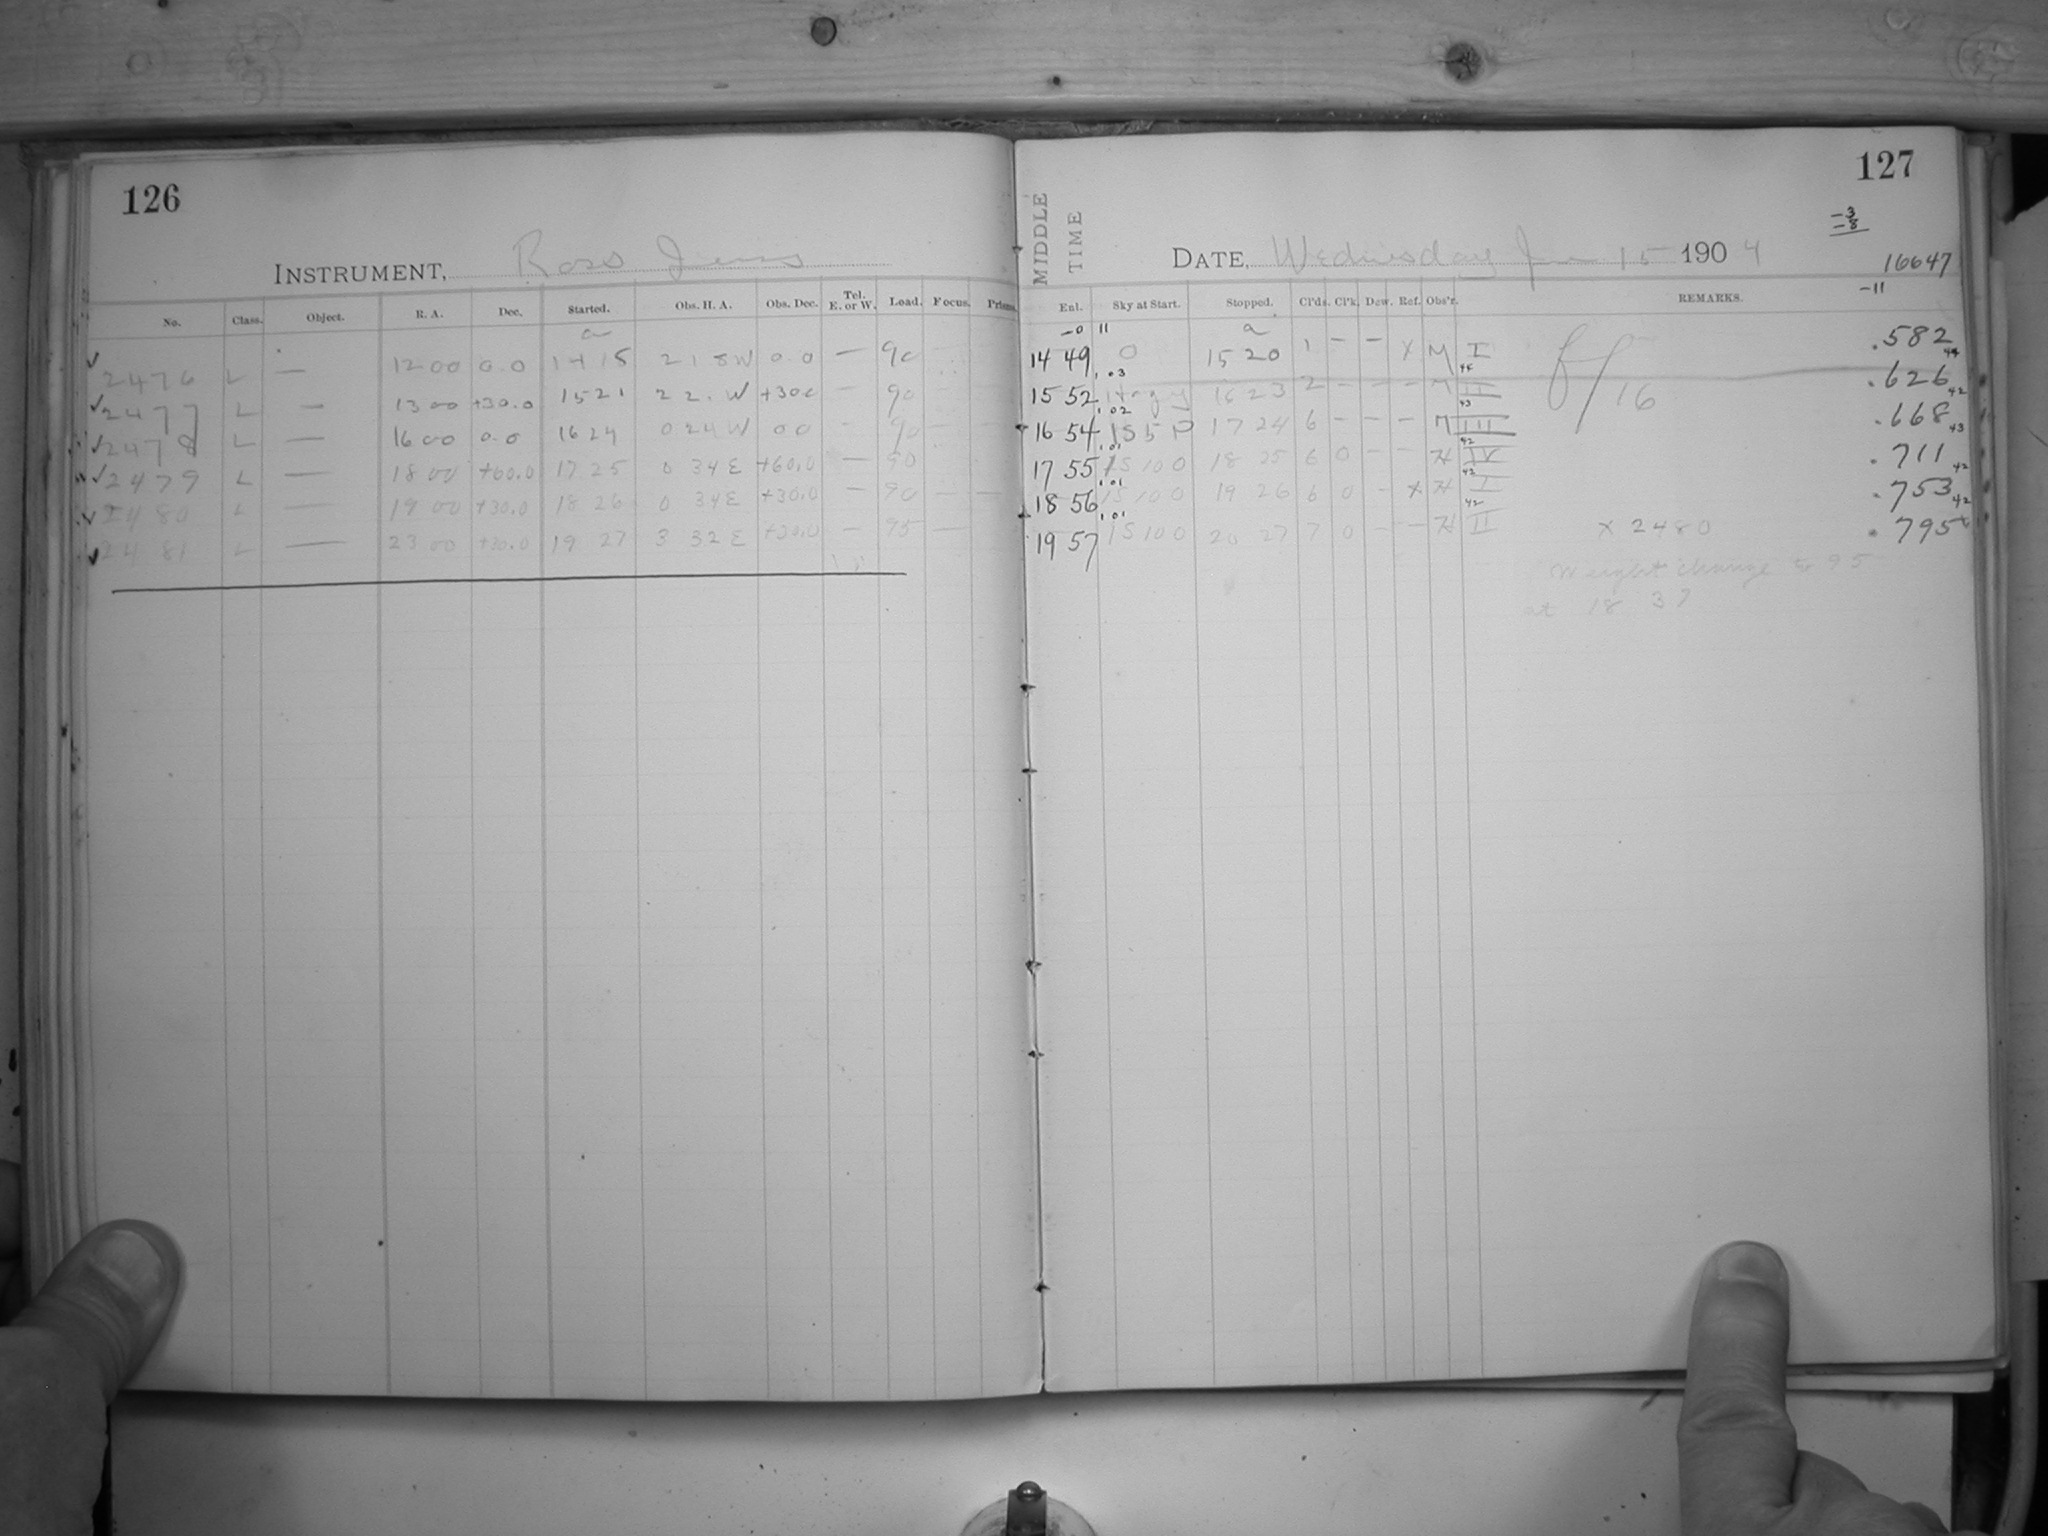 126
INSTRUMENT, Ross Lens
No. Class. Object. R. A. Dec. Started. Obs. H. A. Obs. Dec. Tel. E. or W. Load. Focus. Prisms.
a
✓ 2476 L — 12 00 0.0 14 15 2 15 W 0.0 — 90
✓ 2477 L — 13 00 +30.0 15 21 2 2. W +30.0 — 90
✓ 2478 L — 16 00 0.0 16 24 0 24 W 0 0 — 90
✓ 2479 L — 18 00 +60.0 17 25 0 34 E +60.0 — 90
✓ 2480 L — 19 00 +30.0 18 26 0 34 E +30.0 — 90 — —
✓ 2481 L — 23 00 +30.0 19 27 3 32 E +30.0 — 95 —
127
MIDDLE TIME
-3
-8
DATE, Wednesday Jun 15 1904
16647
-11
Enl. Sky at Start. Stopped. Cl'ds. Cl'k. Dew. Ref. Obs'r. REMARKS.
-0 11 a
14 49 0 15 20 1 — — X M I f/16 .582 44
1.03 44
15 52 Hazy 16 23 2 — — — M II .626 42
1.02 43
16 54 15 5 P 17 24 6 — — — M III .668 43
1.01 42
17 55 15 10 0 18 25 6 0 — — H IV .711 42
1.01 42
18 56 15 10 0 19 26 6 0 — X H I .753 42
1.01 42
19 57 15 10 0 20 27 7 0 — — H II X 2480 .795
Weight change to 95
at 18 37